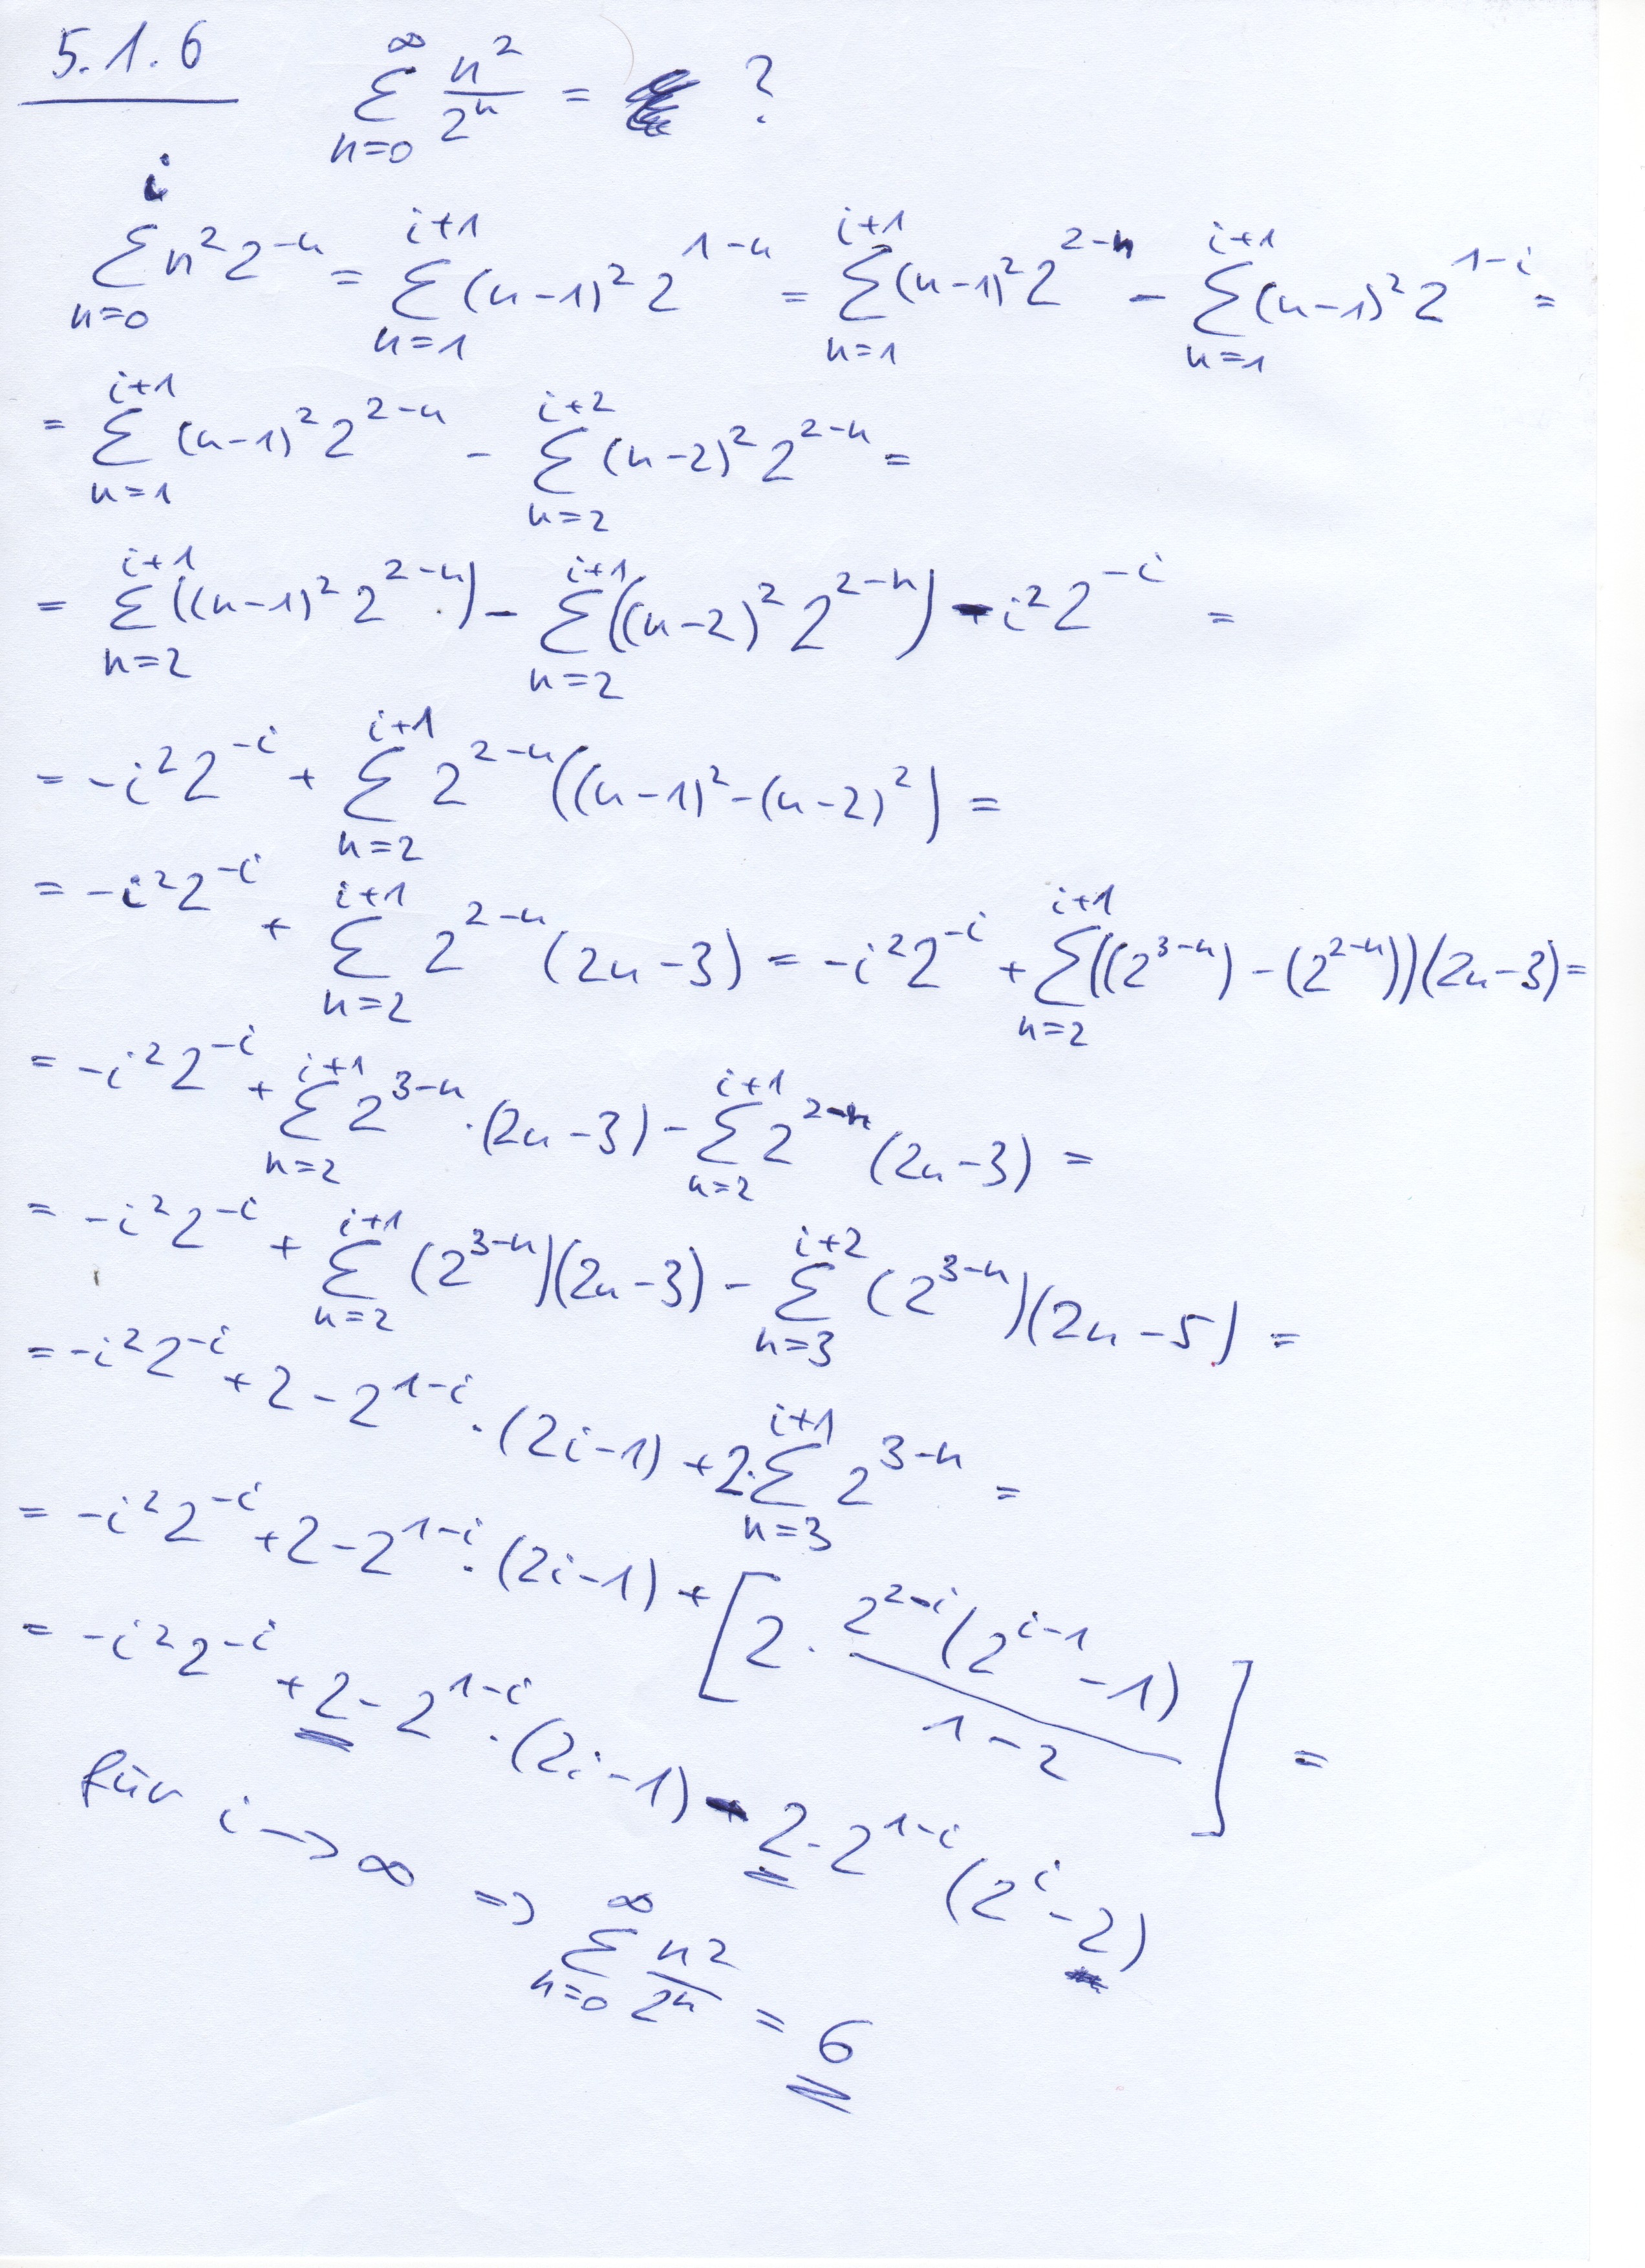 5.1.6 ∑_{n=0}^{∞} n²/2ⁿ = ?
∑_{n=0}^{i} n² 2^{-n} = ∑_{n=1}^{i+1} (n-1)² 2^{1-n} = ∑_{n=1}^{i+1} (n-1)² 2^{2-n} - ∑_{n=1}^{i+1} (n-1)² 2^{1-i} =
= ∑_{n=1}^{i+1} (n-1)² 2^{2-n} - ∑_{n=2}^{i+2} (n-2)² 2^{2-n} =
= ∑_{n=2}^{i+1} ((n-1)² 2^{2-n}) - ∑_{n=2}^{i+1} ((n-2)² 2^{2-n}) - i² 2^{-i} =
= -i² 2^{-i} + ∑_{n=2}^{i+1} 2^{2-n} ((n-1)² - (n-2)²) =
= -i² 2^{-i} + ∑_{n=2}^{i+1} 2^{2-n} (2n-3) = -i² 2^{-i} + ∑_{n=2}^{i+1} ((2^{3-n}) - (2^{2-n})) (2n-3) =
= -i² 2^{-i} + ∑_{n=2}^{i+1} 2^{3-n} · (2n-3) - ∑_{n=2}^{i+1} 2^{2-n} (2n-3) =
= -i² 2^{-i} + ∑_{n=2}^{i+1} (2^{3-n})(2n-3) - ∑_{n=3}^{i+2} (2^{3-n})(2n-5) =
= -i² 2^{-i} + 2 - 2^{1-i} · (2i-1) + 2·∑_{n=3}^{i+1} 2^{3-n} =
= -i² 2^{-i} + 2 - 2^{1-i} · (2i-1) + [2 · 2^{2-i}(2^{i-1} - 1) / 1-2] =
= -i² 2^{-i} + 2 - 2^{1-i} · (2i-1) - 2 · 2^{1-i} (2^{i} - 2)
für i → ∞ ⇒ ∑_{n=0}^{∞} n²/2ⁿ = 6